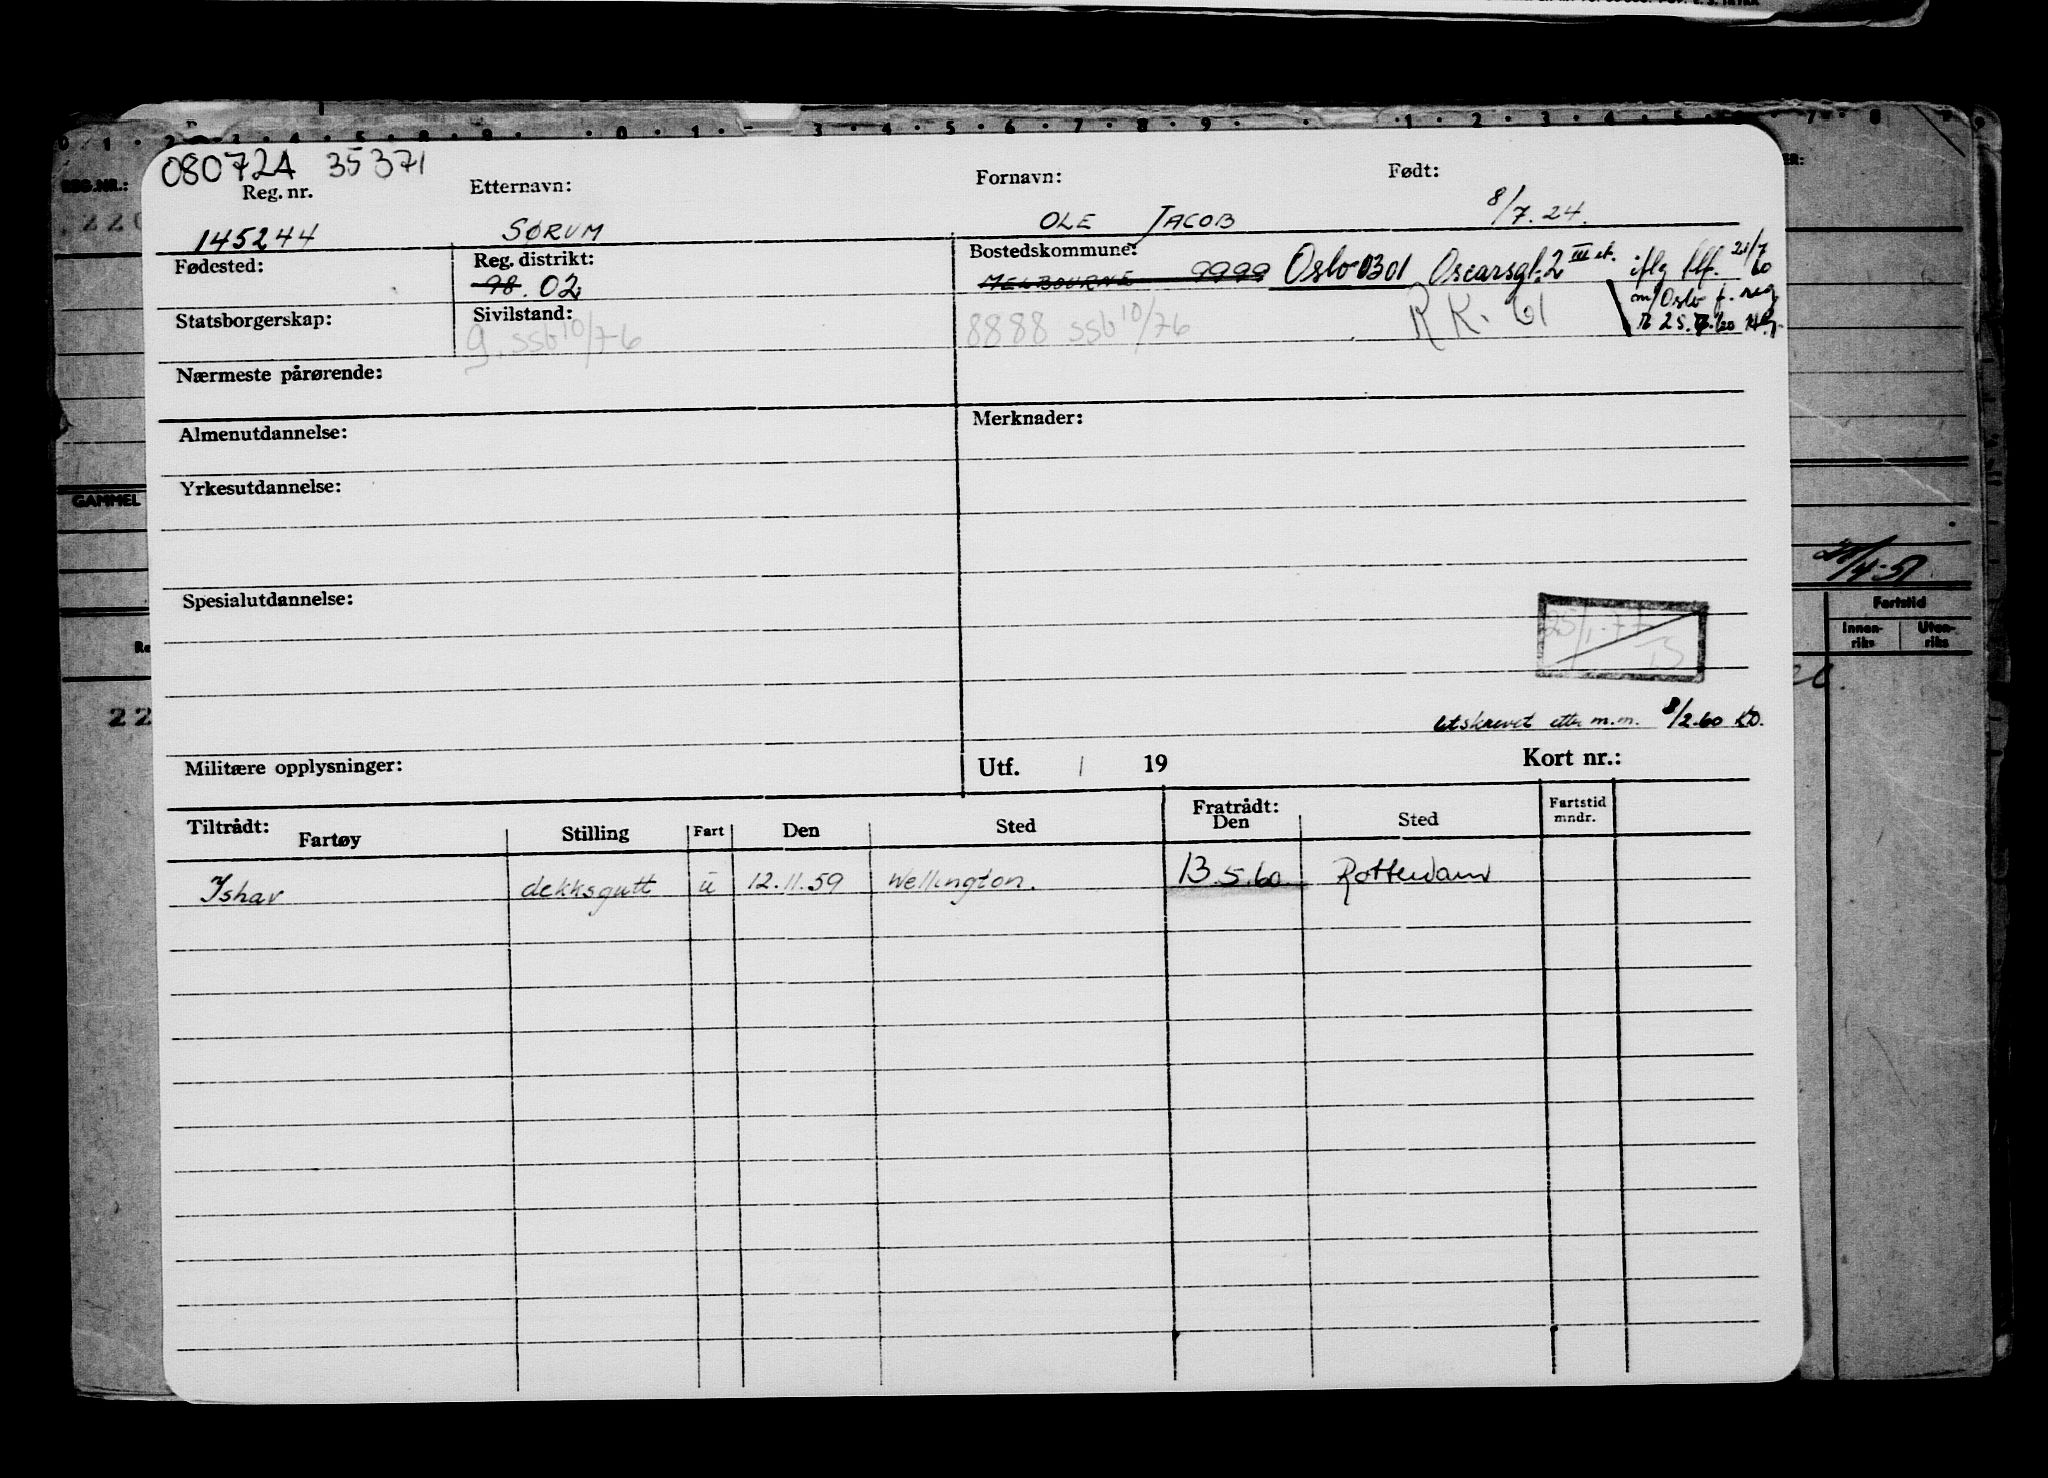 080724 35371
Reg. nr. Etternavn: Fornavn: Født:
145244 SØRUM OLE JACOB 8/7.24.
Fødested: Reg. distrikt: Bostedskommune:
98. 02 MELBOURNE 9999 Oslo 0301 Oscarsgt. 2 III et. iflg tlf. 21/7 60
Statsborgerskap: Sivilstand: m/Oslo f. reg
g. ssb 10/76 8888 ssb 10/76 R K. 61
Nærmeste pårørende:
Almenutdannelse: Merknader:
Yrkesutdannelse:
Spesialutdannelse:
25/1.77
Utskrevet etter m.m. 8/2.60
Militære opplysninger: Utf. / 19 Kort nr.:
Tiltrådt: Fartøy Stilling Fart Den Sted Fratrådt: Den Sted Fartstid mndr.
Ishav dekksgutt u 12.11.59 Wellington. 13.5.60. Rotterdam
REG.NR.:
GAMMEL
22
Fartstid
Innen-riks Uten-riks